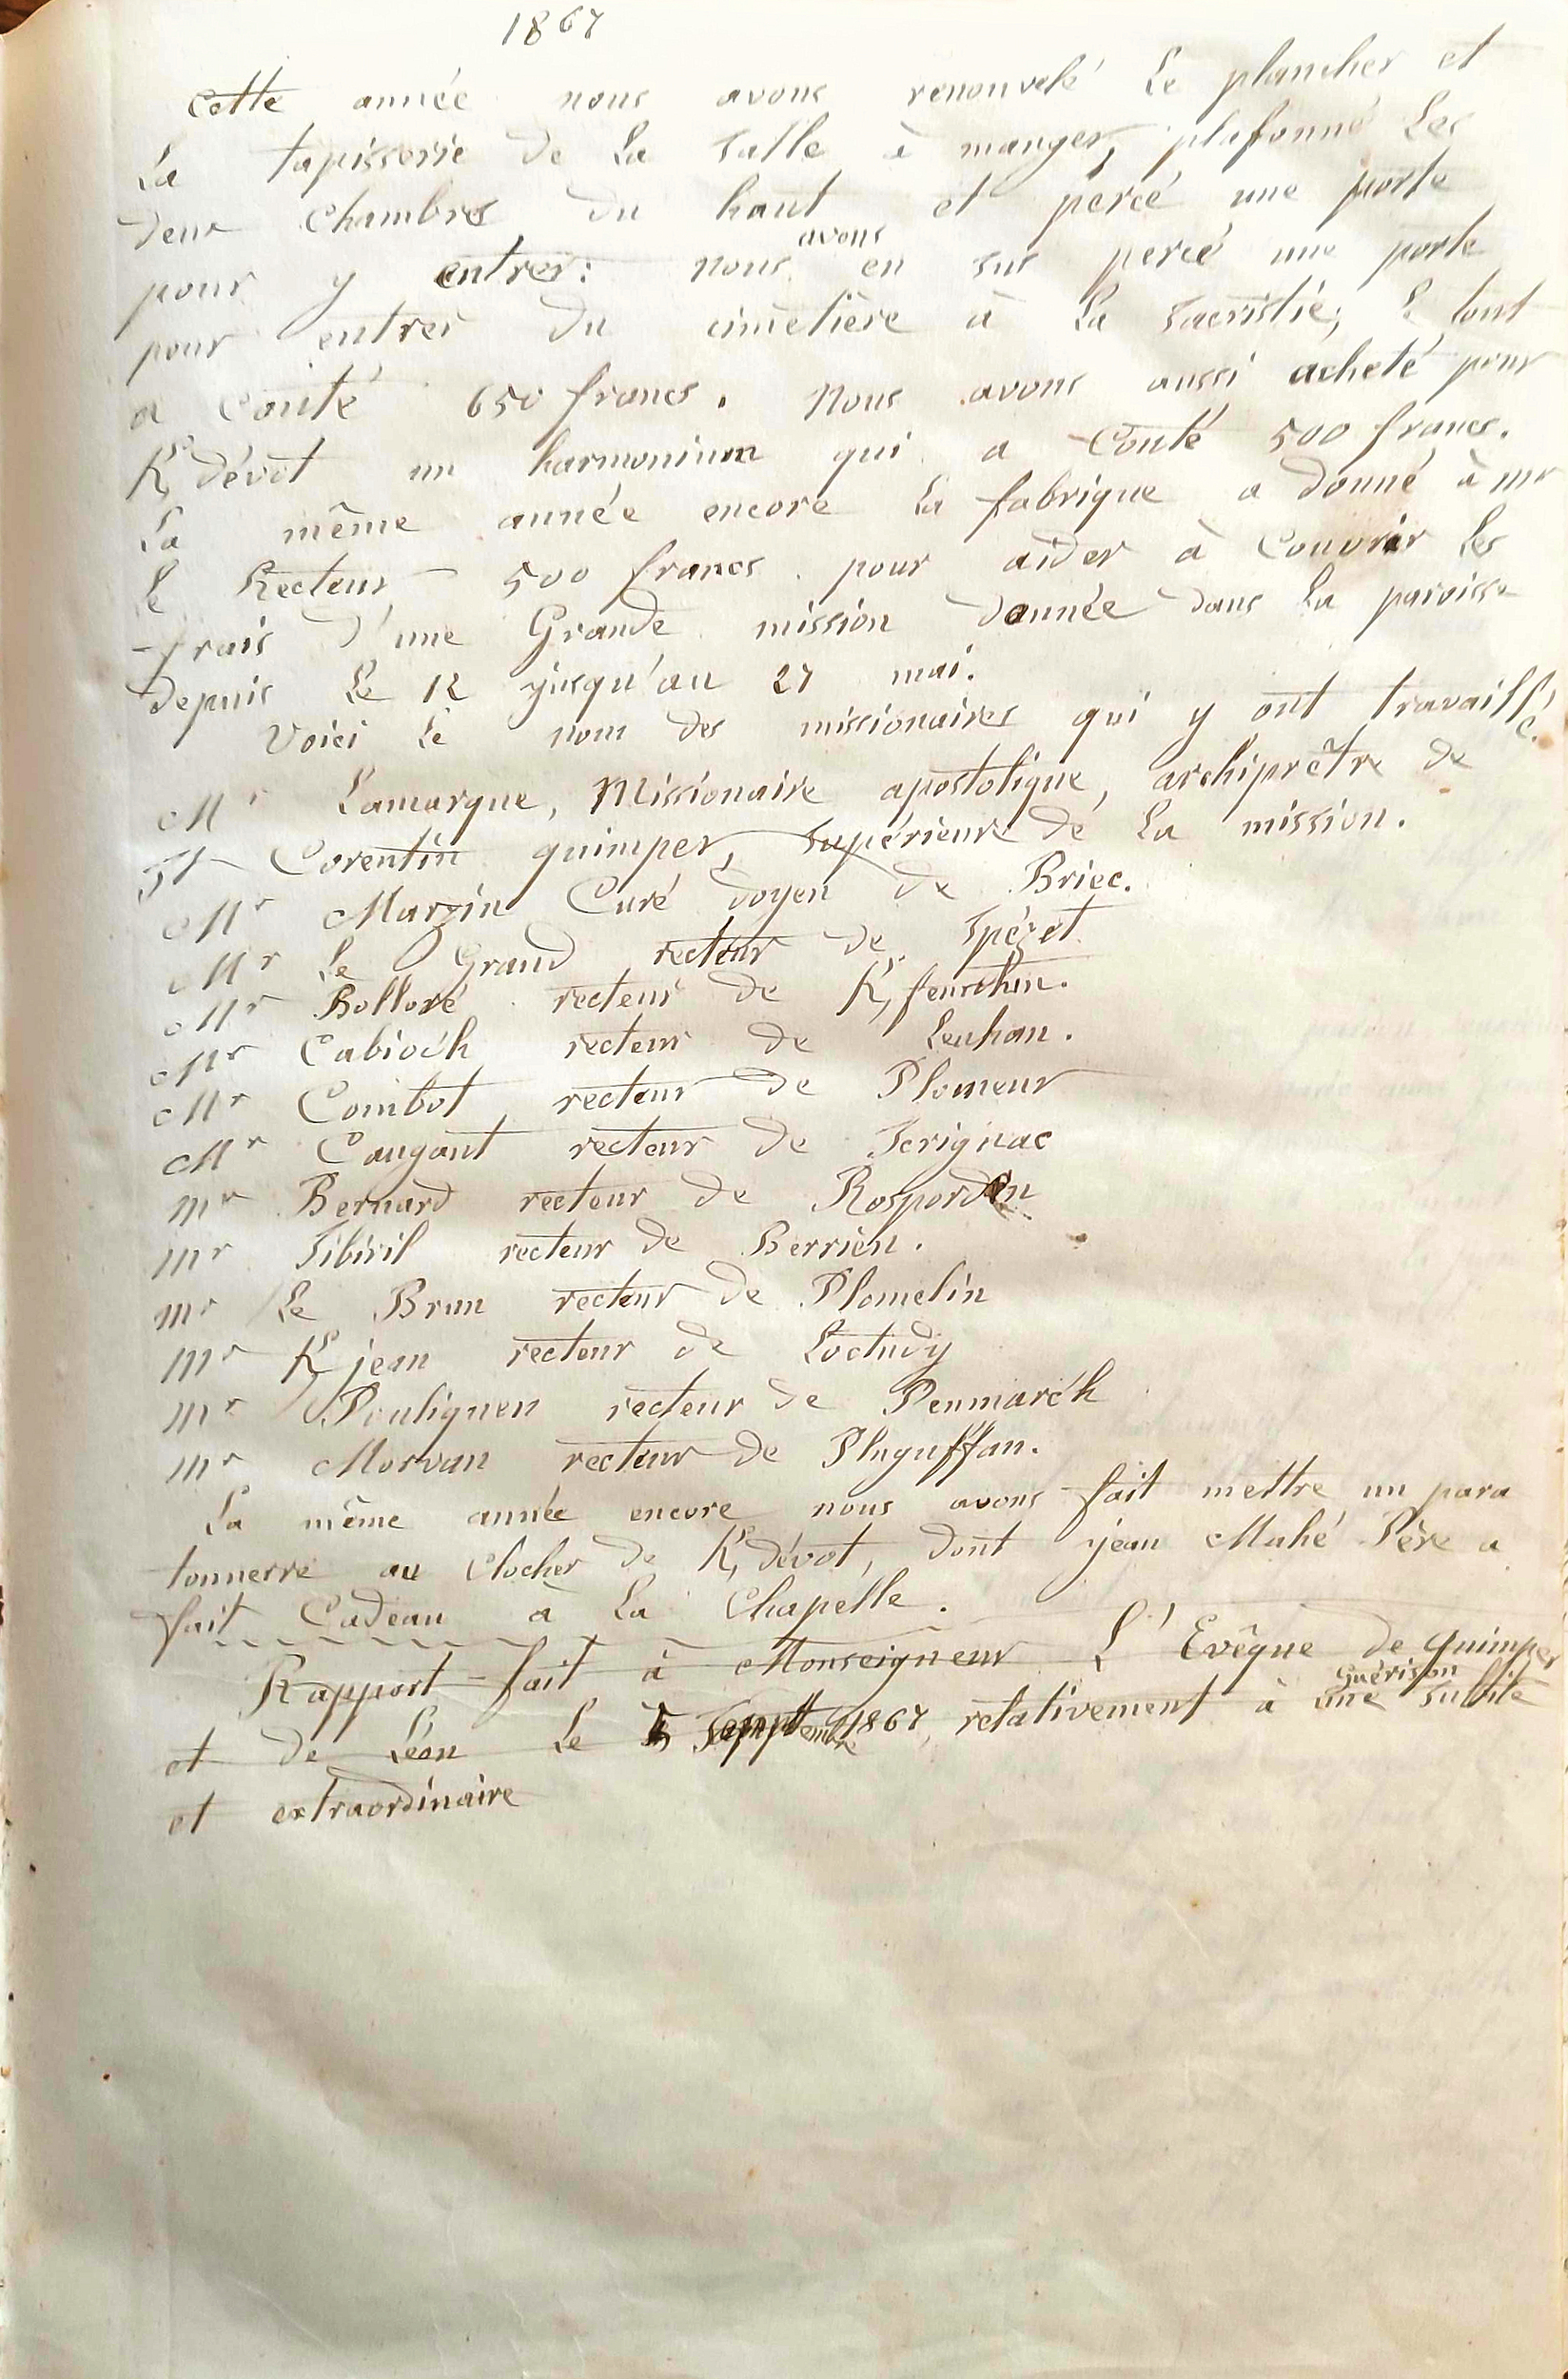 1867
Cette année nous avons renouvelé Le plancher et
La tapisserie de La Salle à manger, plafonné Les
deux Chambres du haut et percé une porte
pour y entrer: nous avons en sus percé une porte
pour entrer du cimetière à La Sacristie; Le tout
a Couté 650 francs. Nous avons aussi acheté pour
K,dévot un harmonium qui a Couté 500 francs.
La même année encore La fabrique a donné à mr
Le Recteur 500 francs pour aider à Couvrir Les
frais d'une Grande mission donnée dans La paroisse
depuis Le 12 jusqu'au 27 mai.
Voici Le nom des missionaires qui y ont travaillé.
Mr Lamarque, Missionaire apostolique, archiprêtre de
St Corentin quimper, Supérieure de La mission.
Mr Marzin Curé doyen de Briec.
Mr Le Grand recteur de Spézet
Mr Bolloré recteur de K,feunthun.
Mr Cabioc'h recteur de Leuhan.
Mr Combot recteur de Plomeur
Mr Caugant recteur de Scrignac
mr Bernard recteur de Rosporden
mr Tibiril recteur de Berrien.
mr Le Brun recteur de Plomelin
mr K jean recteur de Loctudy
mr Pouliquen recteur de Penmarc'h
mr Morvan recteur de Pluguffan.
La même année encore nous avons fait mettre un para
tonnerre au Clocher de K,dévot, dont jean Mahé Père a
fait Cadeau à La Chapelle.
Rapport fait à Monseigneur L'Evêque de quimper
et de Léon Le 5 Septembre 1867, relativement à une Guérison Subite
et extraordinaire